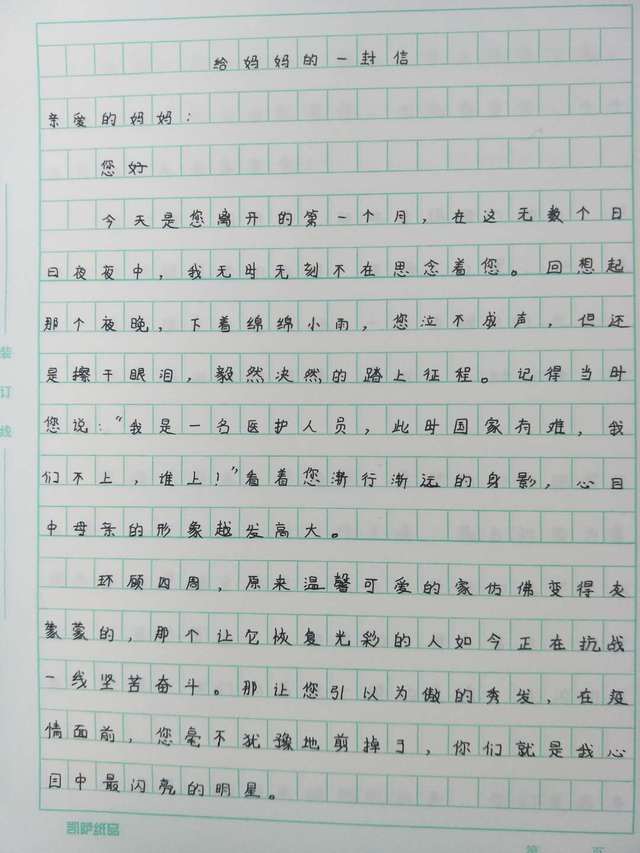 给妈妈的一封信
亲爱的妈妈：
您好
今天是您离开的第一个月，在这无数个日
日夜夜中，我无时无刻不在思念着您。回想起
那个夜晚，下着绵绵小雨，您泣不成声，但还
是擦干眼泪，毅然决然的踏上征程。记得当时
您说：“我是一名医护人员，此时国家有难，我
们不上，谁上！”看着您渐行渐远的身影，心目
中母亲的形象越发高大。
环顾四周，原来温馨可爱的家仿佛变得灰
蒙蒙的，那个让它恢复光彩的人如今正在抗战
一线坚苦奋斗。那让您引以为傲的秀发，在疫
情面前，您毫不犹豫地剪掉了，你们就是我心
目中最闪亮的明星。
装
订
线
凯萨纸品
第 页